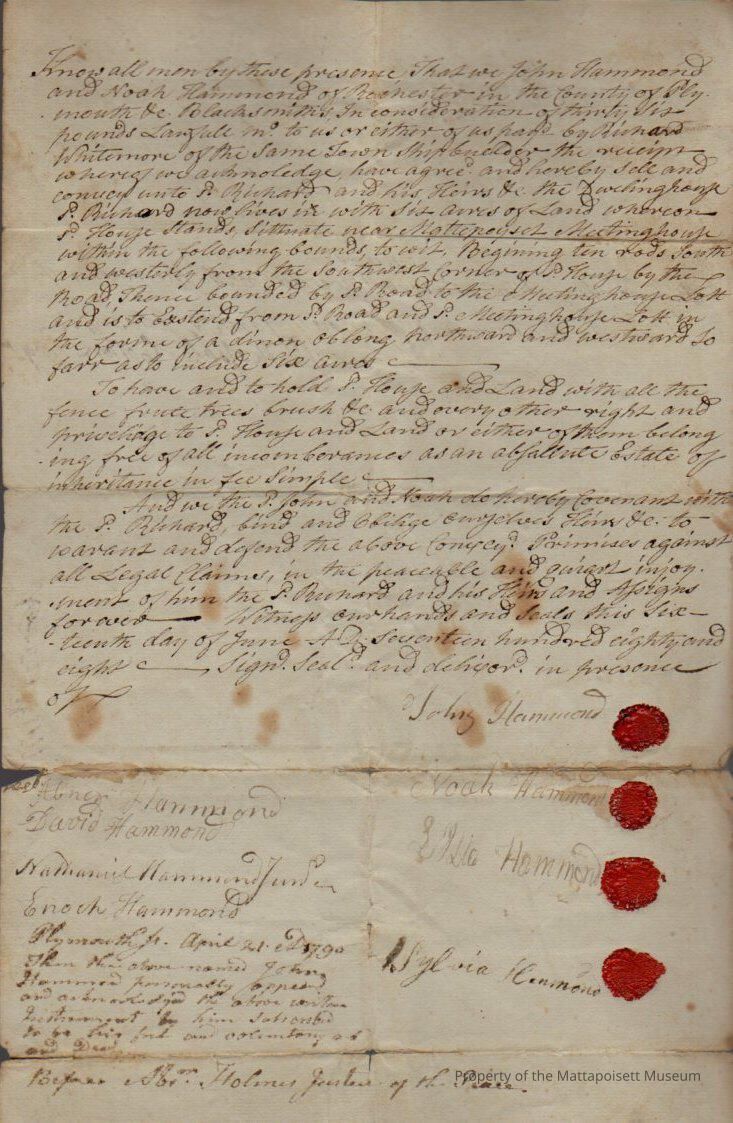 Know all men by these presence, That we John Hammond
and Noah Hammond of Rochester in the County of Ply-
mouth &c. Blacksmiths, In consideration of thirty six
pounds Lawfull mo. to us or either of us paid by Richard
Whitemore of the Same Town Shipbuilder the receipt
whereof we acknoledge, have agreed. and hereby sell and
convey unto Sd. Richard and his Heirs &c. the Dwelinghouse
Sd. Richard now lives in with Six acres of Land whereon
Sd. House Stands, Sittuate near Mattepoiset Meetinghouse
within the following bounds, to wit, Begining ten rods South
and westerly from the Southwest Corner of Sd. House by the
Road, Thence bounded by Sd. Road, to the Meetinghouse Lott
and is to Exstend from Sd. Road and Sd. Meetinghouse Lott in
the forme of a oblong northward and westward so
farr as to include Six acres
To have and to hold Sd. House and Land with all the
fence frute trees brush &c. and every other right and
privelidge to Sd. House and Land or either of them belong
ing free of all incomberances as an absallute Estate of
inheritance in fee Simple
And we the Sd. John and Noah do hereby Covenant with
the Sd. Richard, bind and Oblige ourselves Heirs &c. to
warant and defend the above Convey'd Primises against
all Legal Claimes, in the peaceable and quiart injoy-
ment of him the Sd. Richard and his Heirs and Assigns
forever Witness our hands and Seals this Six-
teenth day of June A.D. Seventeen hundred eighty and
eight Signd. Seald. and deliverd. in presence
of
John Hammond
Abner Hammond
Noah Hammond
David Hammond
Hammond
Nathaniel Hammond Junr.
Enoch Hammond
Sylvia Hammond
Plymouth Ss. April 21. AD 1790
Then the above named John
Hammond personally appeard
and acknowledged the above written
Instrument by him Subscribed
to be his free and voluntary act
and Deed
Before Abrm. Holmes Justice of the Peace
Property of the Mattapoisett Museum